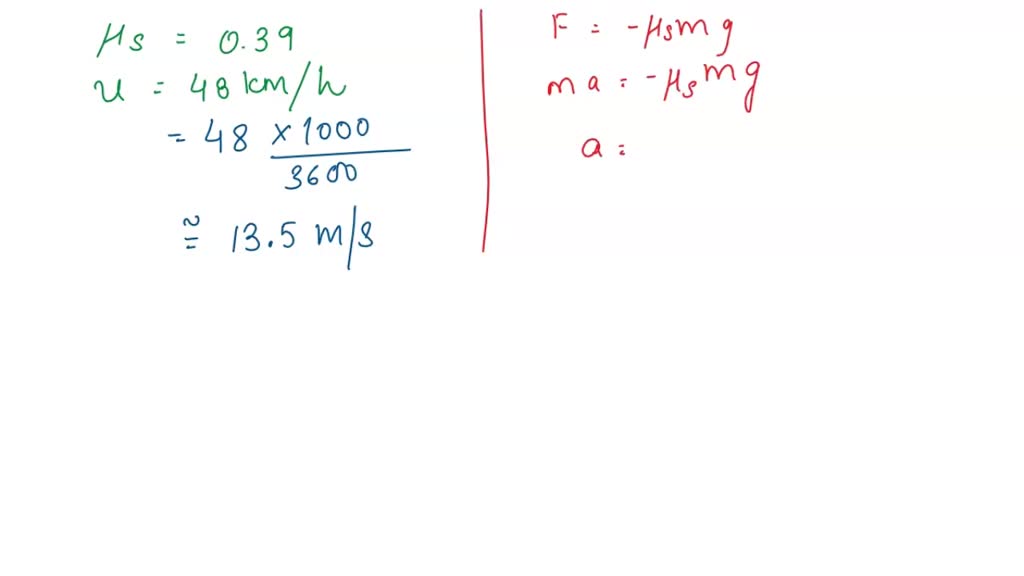 μs = 0.39
u = 48 km/h
= 48 × 1000
3600
≅ 13.5 m/s
F = -μs m g
m a = -μs m g
a =